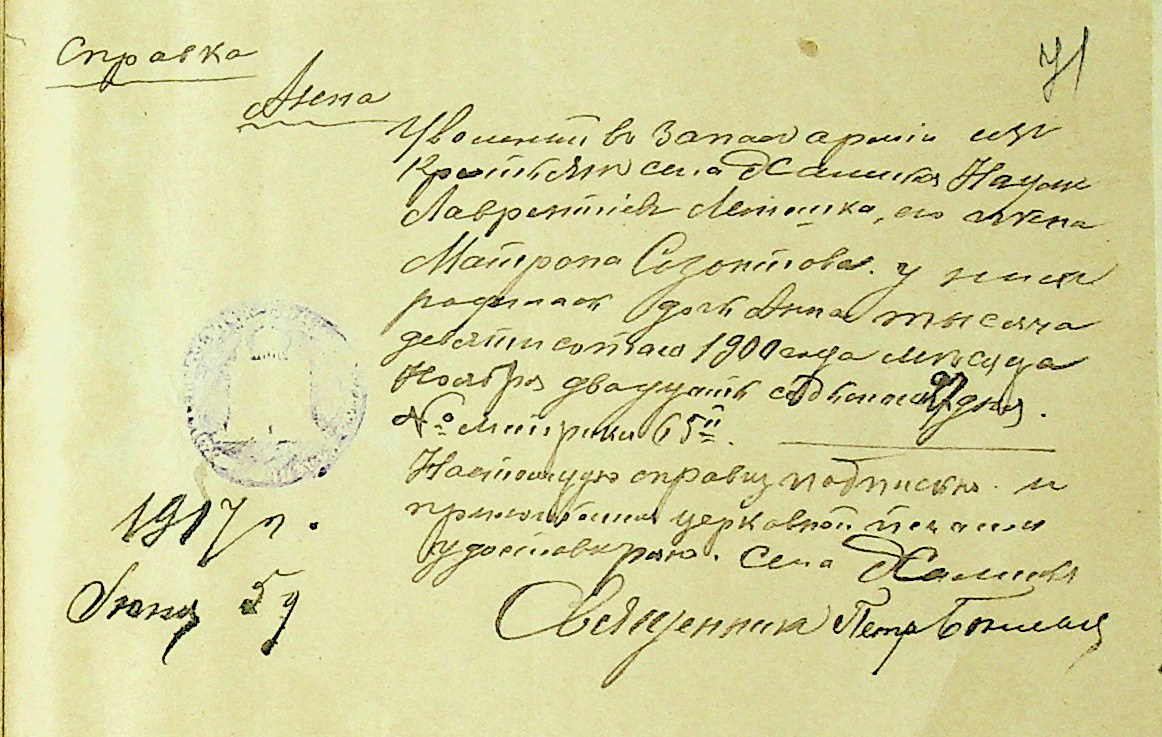 Справка
71
Анна
Уволенный въ запасъ арміи изъ
крестьянъ села Жалинка Наумъ
Лаврентіевъ Летошка, его жена
Матрона Созонтова. у нихъ
родилась дочь Анна тысяча
девятисотаго 1900 года мѣсяца
Ноября двадцать седьмаго 27 дня.
№ метрики 65й.
Настоящую справку подписью и
приложеніемъ церковной печати
удостовѣряю. села
1917 г.
Іюня 5 д
Священникъ Петръ